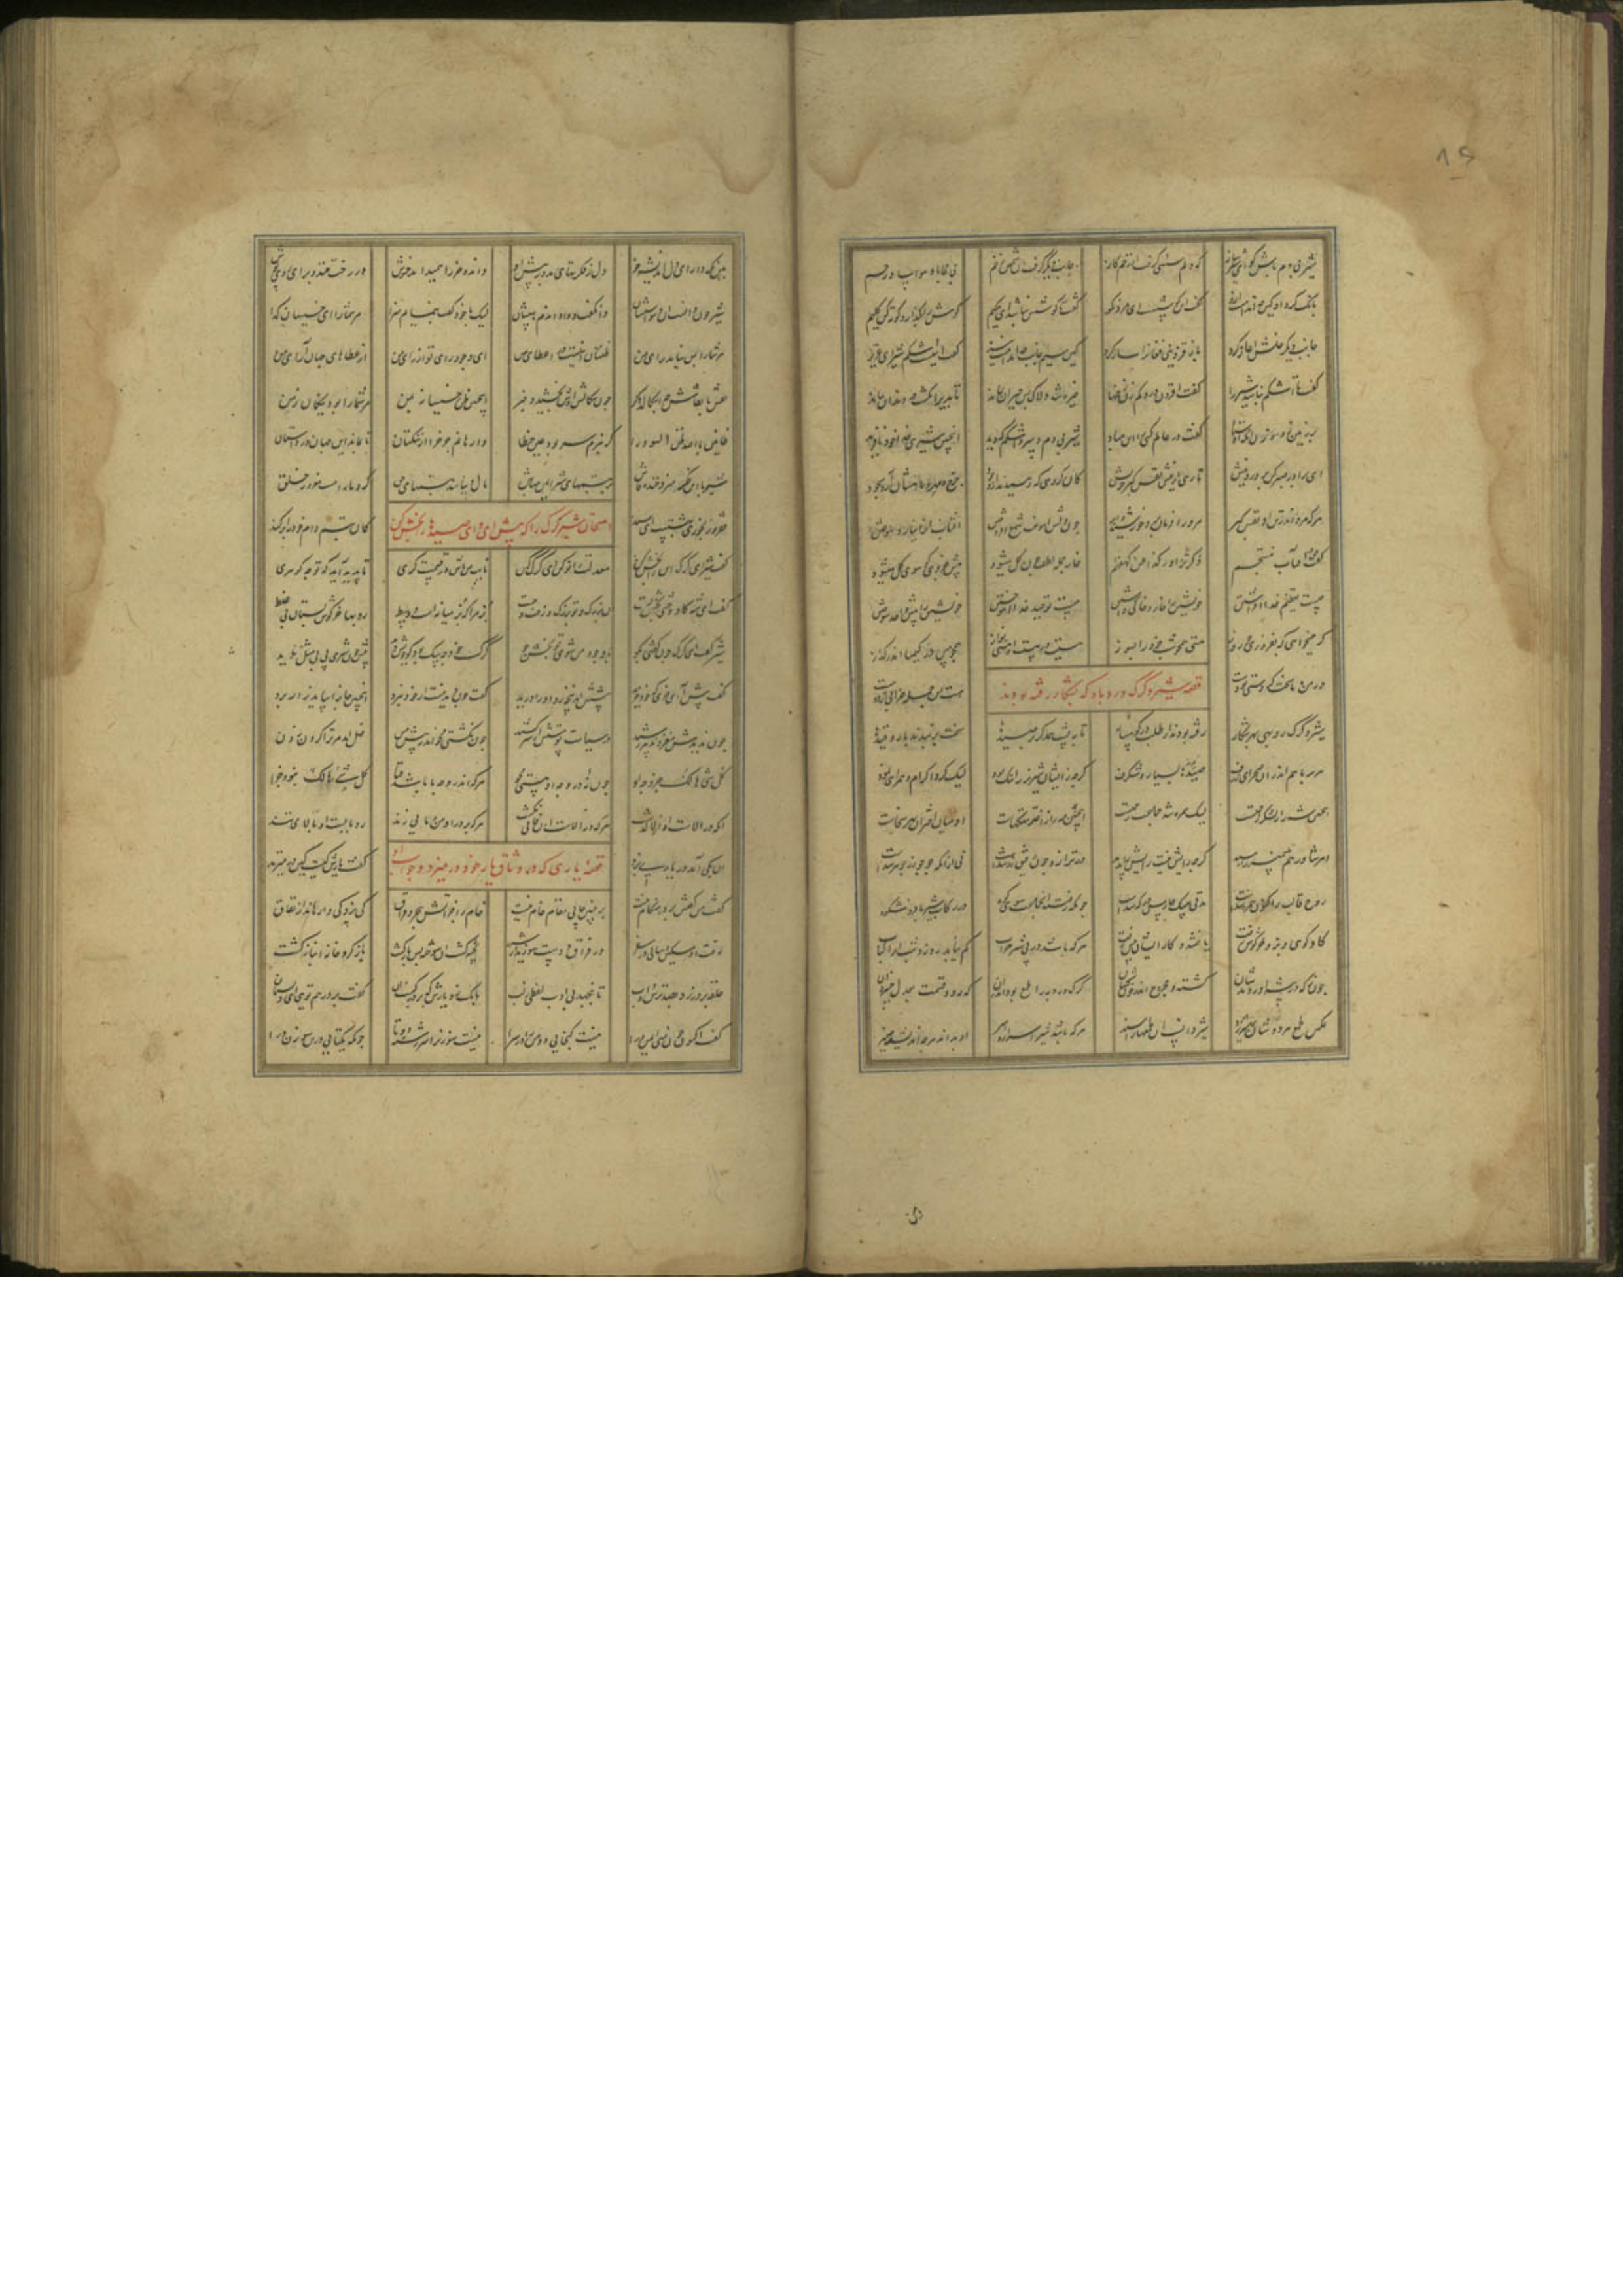 شیر بی دم باش گو ای شیرساز که دلم سستی گرفت از زخم گاز جانب دیگر گرفت آن شخص زخم بی محابا و مواسا و رحم
بانگ کرد او کین چه اندامست ازو گفت این گوشست ای مرد نکو گفت تا گوشش نباشد ای حکیم گوش را بگذار و کوته کن گلیم
جانب دیگر خلش آغاز کرد باز قزوینی فغانرا ساز کرد کین سیم جانب چه اندامست نیز گفت اینست اشکم شیر ای عزیز
گفت تا اشکم نباشد شیر را گفت افزون درد کم زن زخمها خیره شد دلاک بس حیران بماند تا بدیر انگشت در دندان بماند
بر زمین زد سوزن آن دم اوستاد گفت در عالم کسی را این فتاد شیر بی دم و سر و اشکم که دید اینچنین شیری خدا خود نافرید
ای برادر صبر کن بر درد نیش تا رهی از نیش نفس گبر خویش کان گروهی که رهیدند از وجود چرخ و مهر و ماهشان آرد سجود
هرکه مرد اندر تن او نفس گبر مر ورا فرمان برد خورشید و ابر چون دلش آموخت شمع افروختن آفتاب او را نیارد سوختن
گفت حق در آفتاب منتجم ذکر تزاور کذا عن کهفهم خار جمله لطف چون گل میشود پیش جزوی کو سوی کل میشود
چیست تعظیم خدا افراشتن خویشتن را خار و خاکی داشتن چیست توحید خدا آموختن خویشتن را پیش واحد سوختن
گر همیخواهی که بفروزی چو روز هستی همچون شب خود را بسوز هستیت در هست آن هستی نواز همچو مس در کیمیا اندر گداز
در من و ما سخت کردستی دو دست هست این جمله خرابی از دو هست
قصه شیر و گرگ و روباه که بشکار رفته بودند
شیر و گرگ و روبهی بهر شکار رفته بودند از طلب در کوهسار تا به پشت همدگر بر صیدها سخت بر بندند بار و قیدها
هر سه با هم اندر آن صحرای ژرف صیدها گیرند بسیار و شگرف گرچه زایشان شیر نر را ننگ بود لیک کرد اکرام و همراهی نمود
اینچنین شه را ز لشکر زحمتست لیک همره شد جماعت رحمتست اینچنین مه را ز اختر ننگهاست او میان اختران بهر سخاست
امر شاورهم پیمبر را رسید گرچه رایش نیست رایش را ندید در ترازو جو رفیق زر شدست نی از آنکه جو چو زر جوهر شدست
روح قالب را کنون همره شدست مدتی سگ حارس درگه شدست چونکه رفتند این جماعت سوی کوه در رکاب شیر با فر و شکوه
گاو کوهی و بز و خرگوش زفت یافتند و کار ایشان پیش رفت هرکه باشد در پی شیر حراب کم نیاید روز و شب او را کباب
چون ز که در بیشه آوردندشان کشته و مجروح و اندر خون کشان گرگ و روبه را طمع بود اندر آن که رود قسمت بعدل خسروان
عکس طمع هر دوشان بر شیر زد شیر دانست آن طمعها را سند هرکه باشد شیر اسرار و امیر او بداند هرچه اندیشد ضمیر
هین نگه دار ای دل اندیشه خو دل ز فکرتهای بد در پیش او داند و خر را همیراند خموش در رخت خندد برای روی پوش
شیر چون دانست آن وسواسشان وانگفت و داشت آندم پاسشان لیک با خود گفت بنمایم سزا مر شما را ای خسیسان گدا
مر شما را بس نیامد رای من ظنتان اینست در اعطای من ای وجود و رای تو از رای من از عطاهای جهان آرای من
نقش با نقاش چه سگالد دگر چون سگالش اوش بخشید و خبر اینچنین ظن خسیسانه بمن مر شما را بود ننگان زمن
ظانین بالله ظن السوء را گر نبرم سر بود عین خطا وارهانم چرخ را از ننگتان تا بماند این جهان در داستان
شیر با این فکر میزد خنده فاش بر تبسمهای شیر ایمن مباش مال دنیا شد تبسمهای حق کرد ما را مست و مغرور و خلق
فقر و رنجوری بهستت ای سند کان تبسم دام خود را بر کند
امتحان شیر گرگ را که پیش آی ای صیدها را بخش کن
گفت شیر ای گرگ این را بخش کن معدلت را نو کن ای گرگ کهن نایب من باش در قسمت گری تا پدید آید که تو چه گوهری
گفت ای شه گاو وحشی بخش تست آن بزرگ و تو بزرگ و زفت و چست بز مرا که بز میانه است و وسط روبها خرگوش بستان بی غلط
شیر گفت ای گرگ چون گفتی بگو گرگ خود چه سگ بود کو خویش دید پیش چون من شیر بی مثل و ندید
گفت پیش آ ای خری کو خود خرید پیشش آمد پنجه زد او را درید گفت چون دید منت از خود نبرد اینچنین جان را بباید زار مرد
چون ندیدش مغز و تدبیر رشید در سیاست پوستش از سر کشید چون نگشتی فانی اندر پیش من فضل آمد مر ترا گردن زدن
کل شیء هالک جز وجه او چون نه در وجه او هستی مجو هرکه اندر وجه ما باشد فنا کل شیء هالک نبود جزا
زانکه در الاست او از لا گذشت هرکه در الاست او فانی نگشت هرکه بر در او من و ما می زند رد بابست او و بر لا می تند
قصه یاری که در وثاق یار خود در میزد و جواب او
آن یکی آمد در یاری بزد گفت یارش کیستی ای معتمد
گفت من گفتش برو هنگام نیست بر چنین خوانی مقام خام نیست خام را جز آتش هجر و فراق کی پزد کی وارهاند از نفاق
رفت آن مسکین و سالی در سفر در فراق دوست سوزید از شرر پخته گشت آن سوخته پس باز گشت باز گرد خانه انباز گشت
حلقه زد بر در بصد ترس و ادب تا بنجهد بی ادب لفظی ز لب بانگ زد یارش که بر در کیست آن گفت بر در هم تویی ای دلستان
گفت اکنون چون منی ای من درآ نیست گنجایی دو من را در سرا نیست سوزن را سر رشته دوتا چونکه یکتایی درین سوزن درآ